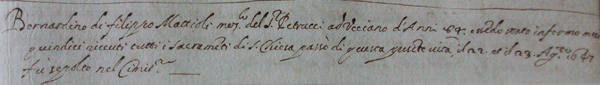 Bernardino di filippo Mattioli del Sr. Petrucci ad Vecciano d'Anni 64. essendo stato infermo
quindici ricevuti tutti i Sacramenti di S. Chiesa passò di questa presente vita il 22. et il 23. Agto. 1647
fu sepolto nel Cimitro.